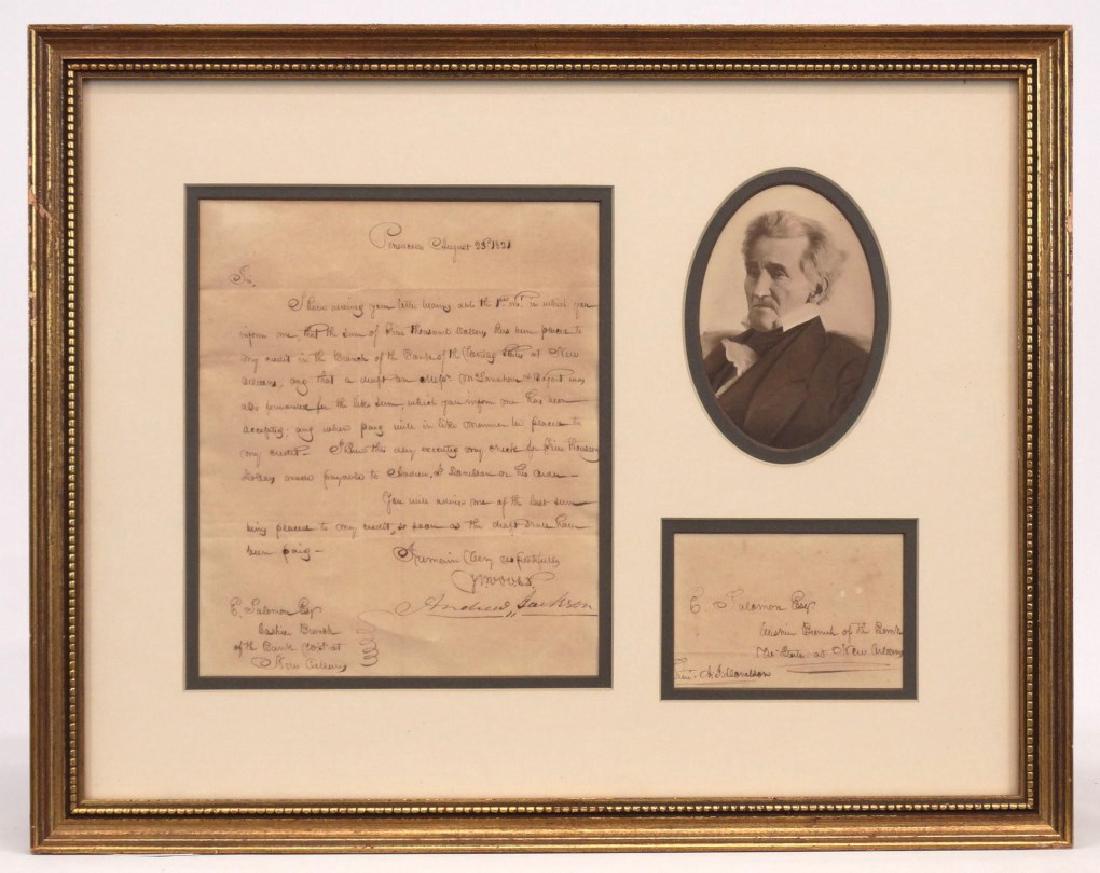 Pensacola August 25th 1821
Sir.
I have received your letter bearing date the 1st inst. in which you
inform me that the sum of Five thousand Dollars has been placed to
my credit in the Branch of the Bank of the United States at New
Orleans, and that a draft on Messrs
also forwarded for the like sum, which you inform me has been
accepted, and when paid will in like manner be placed to
my credit. I have this day executed my check for Five Thousand
Dollars, made payable to Andrew J Donelson or his order
You will advise me of the last sum
being placed to my credit, so soon as the draft shall have
been paid -
I remain very respectfully
Andrew Jackson
E. Salomon Esqr
Cashier Branch
of the Bank at
New Orleans
E. Salomon Esqr
Cashier Branch of the Bank
U States at New Orleans
A. J. Donelson